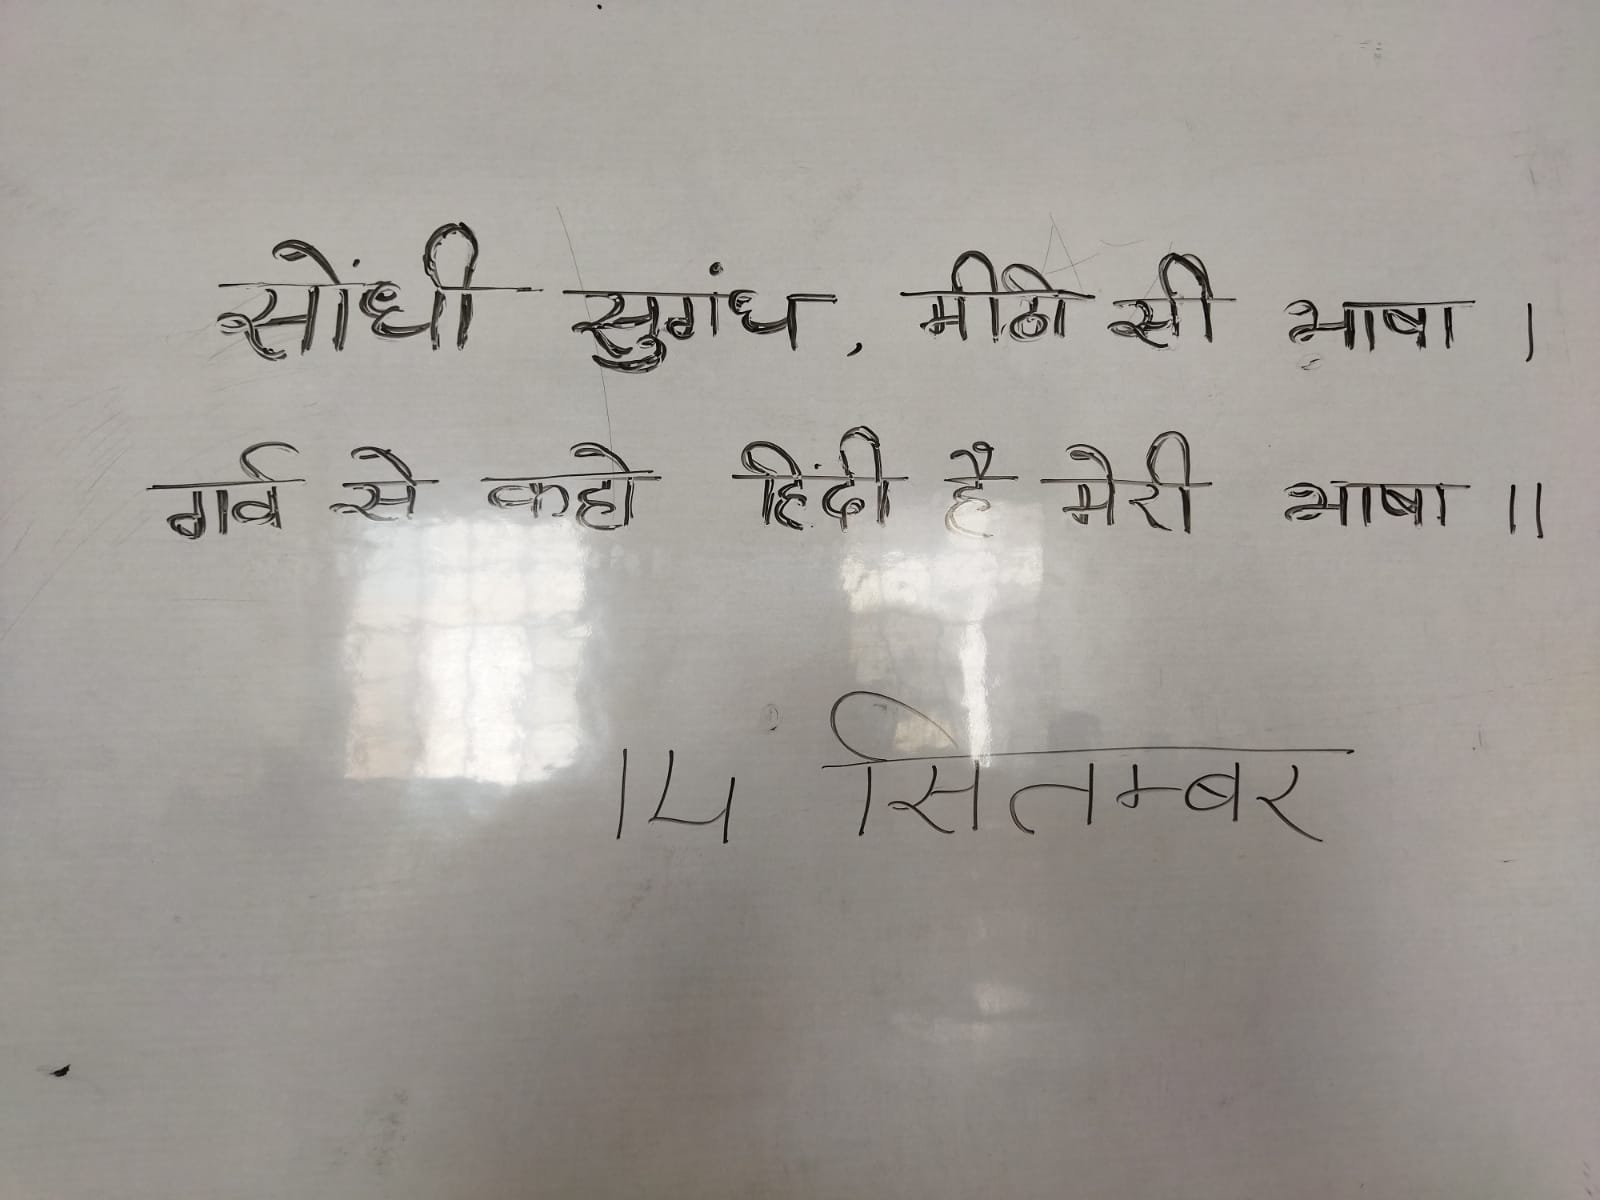 सोंधी सुगंध, मीठी सी भाषा ।
गर्व से कहो हिंदी है मेरी भाषा ॥
14 सितम्बर